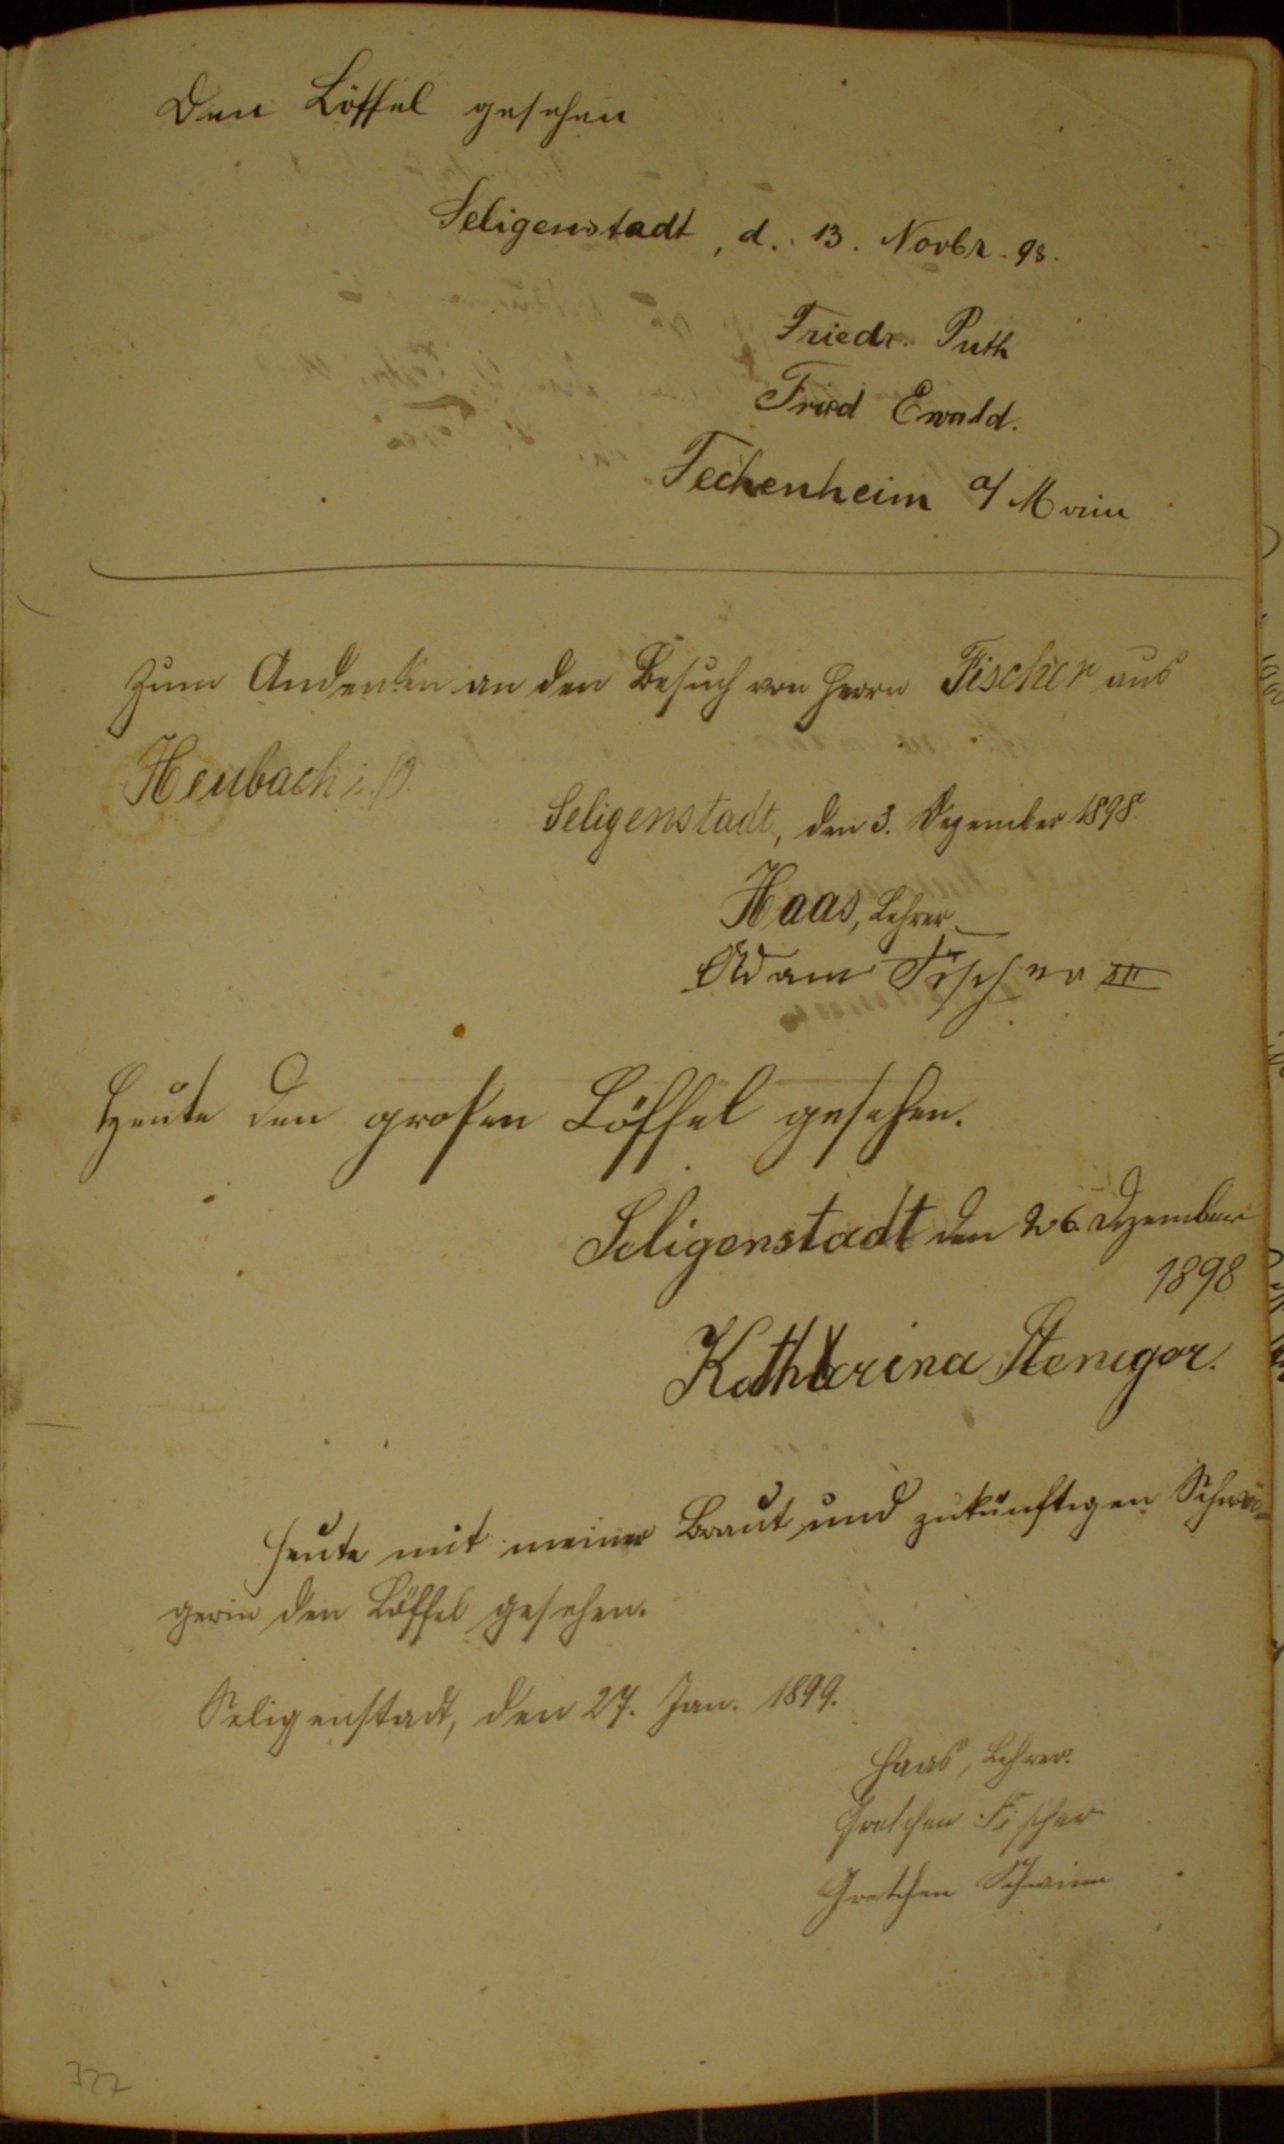 Den Löffel gesehen
Seligenstadt, d. 13. Novbr. 98.
Friedr. Puth
Fried Ewald.
Fechenheim a/ Main
Zum Andenken an den Besuch von Herrn Fischer aus
Heubach i. O.
Seligenstadt, den 3. Dezember 1898.
Haas, Lehrer
Adam Fischer III
Heute den großen Löffel gesehen.
Seligenstadt den 26. Dezember
1898
Katharina Steniger.
Heute mit meiner Braut und zukünftigen Schwä-
gerin den Löffel gesehen.
Seligenstadt, den 27. Jan. 1899.
Haas, Lehrer.
Gretchen Fischer
Gretchen Schwinn
327